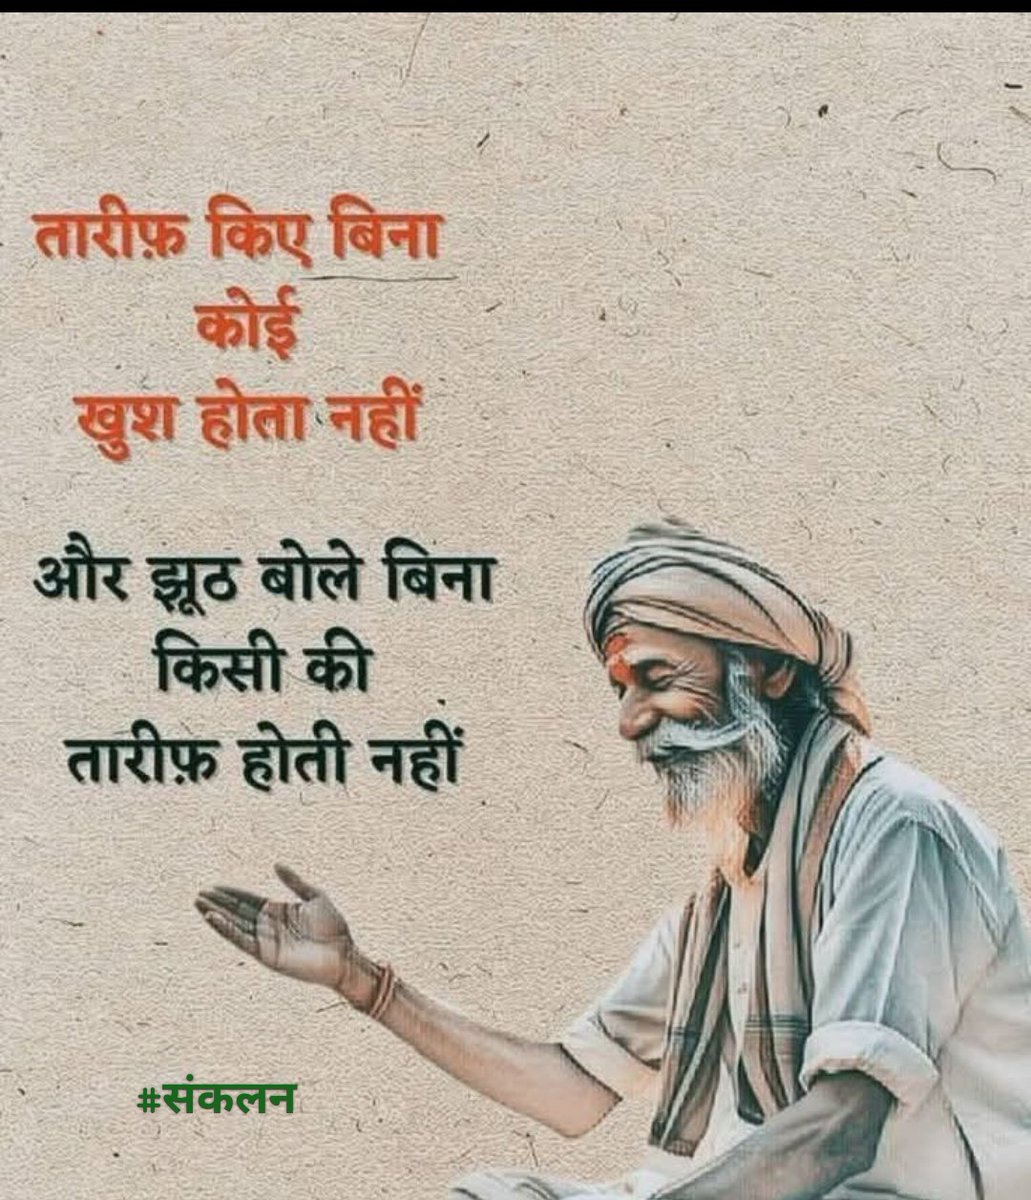 तारीफ़ किए बिना
कोई
खुश होता नहीं
और झूठ बोले बिना
किसी की
तारीफ़ होती नहीं
#संकलन